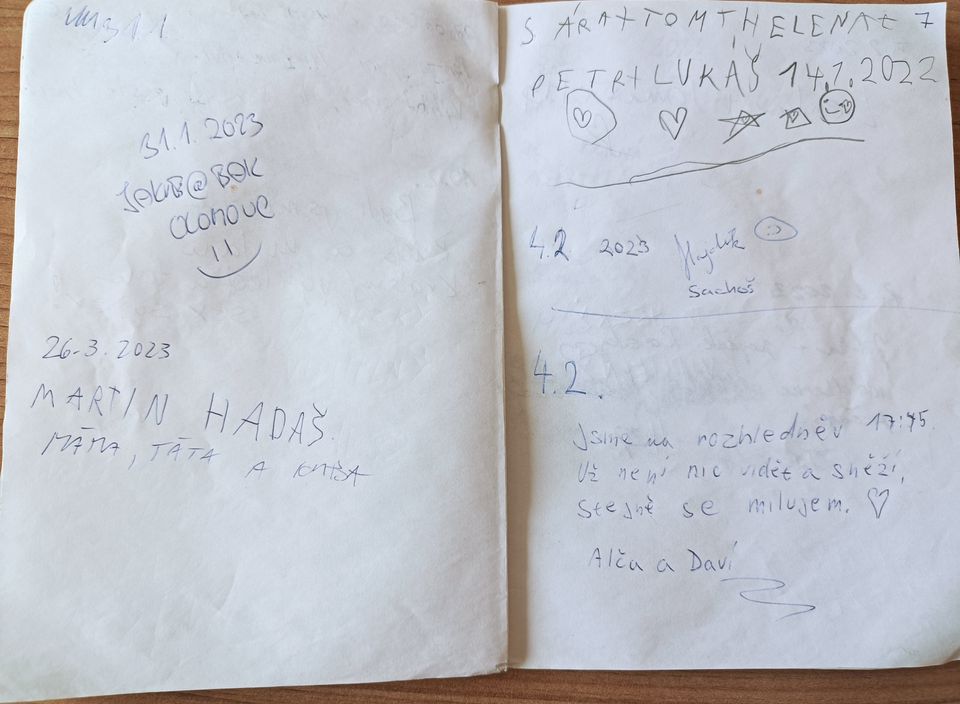 31.1
31.1.2023
JAKUB@BAK
OLOMOUC
26.3.2023
MARTIN HADAŠ.
MÁMA, TÁTA A
SÁRA+TOM+HELENA+
PETR+LUKÁŠ 14.1.2022
4.2 2023 Hajduk :)
Sachoš
4.2.
Jsme na rozhledně v 17:45.
Už není nic vidět a sněží,
stejně se milujem. ♡
Alča a Daví